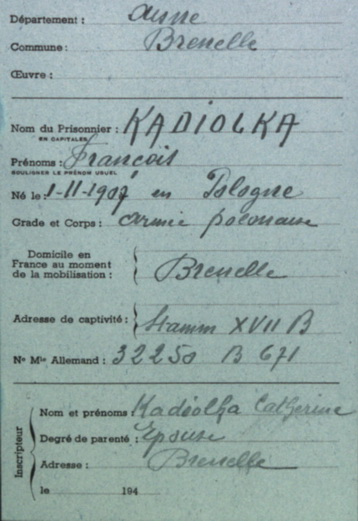 Département : Aisne
Commune : Brenelle
Œuvre :
Nom du Prisonnier : KADIOLKA
EN CAPITALES
Prénoms : François
SOULIGNER LE PRÉNOM USUEL
Né le : 1-11-1907 en Pologne
Grade et Corps : armée polonaise
Domicile en
France au moment
de la mobilisation : Brenelle
Adresse de captivité : Stamm XVII B
N° Mle Allemand : 32250 B 671
Inscripteur
Nom et prénoms Kadiolka Catherine
Degré de parenté : Epouse
Adresse : Brenelle
le 194